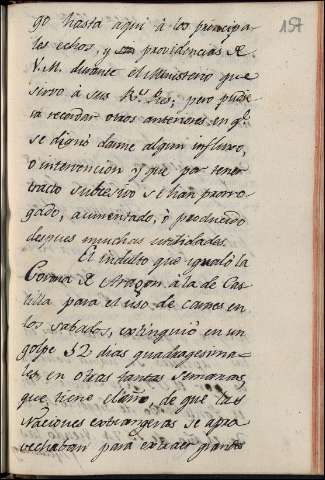 157
go hasta aqui à los principa-
les echos, y providencias de
V. M. durante el Ministerio que
sirvo à sus Rs. Pies; pero pudie
ra recordar otros anteriores en qe.
se dignó darme algun influxo,
o intervencion y que por tener
tracto subcesivo se han prorro-
gado, aumentado, ò producido
despues muchas utilidades
El indulto que igualó la
Corona de Aragon, à la de Cas-
tilla para el uso de carnes en
los sabados, extinguiò en un
golpe 52 dias quadragesima-
les en otras tantas semanas,
que tiene el año, de que las
Naciones extrangeras se apro
vechaban para extraer grandes